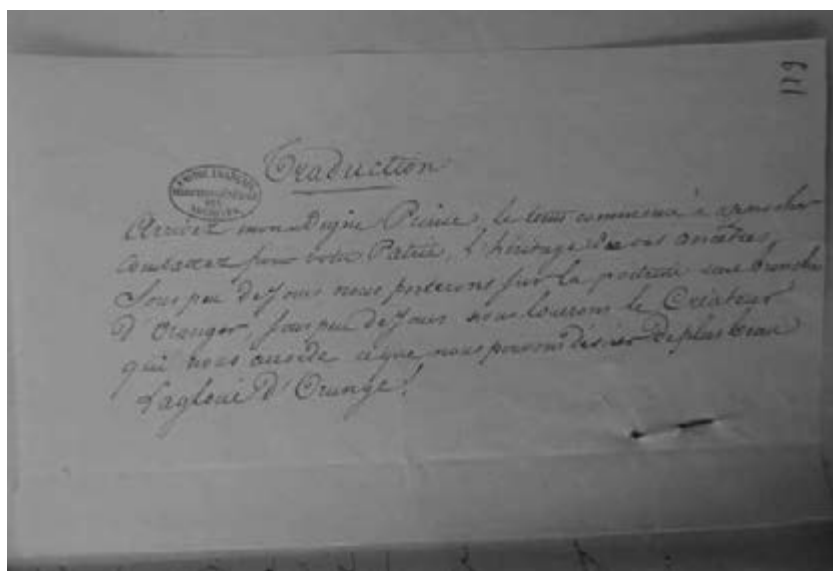 119
Traduction
EMPIRE FRANÇAIS
DIRECTION GÉNÉRALE
DES
ARCHIVES
Arrivez mon Digne Prince, le tems commence à approcher
Combattez pour votre Patrie, l'héritage de vos ancêtres,
Sous peu de Jours nous porterons sur la poitrine une branche
D'Oranger, sous peu de Jours nous louerons le Créateur
qui nous accorde ce que nous pouvons désirer De plus beau
La gloire D'Orange!